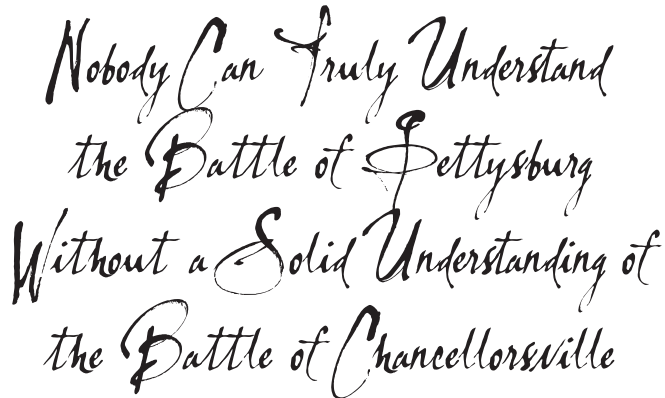 Nobody Can Truly Understand
the Battle of Gettysburg
Without a Solid Understanding of
the Battle of Chancellorsville